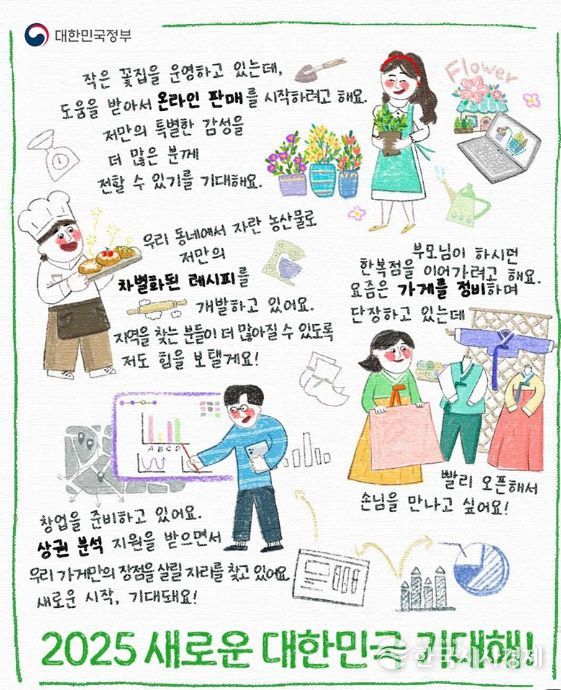 대한민국정부
작은 꽃집을 운영하고 있는데,
도움을 받아서 온라인 판매를 시작하려고 해요.
저만의 특별한 감성을
더 많은 분께
전할 수 있기를 기대해요.
Flower
우리 동네에서 자란 농산물로
저만의
차별화된 레시피를
개발하고 있어요.
지역을 찾는 분들이 더 많아질 수 있도록
저도 힘을 보탤게요!
부모님이 하시던
한복점을 이어가려고 해요.
요즘은 가게를 정비하며
단장하고 있는데
빨리 오픈해서
손님을 만나고 싶어요!
A B C D
창업을 준비하고 있어요.
상권 분석 지원을 받으면서
우리 가게만의 장점을 살릴 자리를 찾고 있어요
새로운 시작, 기대돼요!
2025 새로운 대한민국 기대해!
한국시사경제